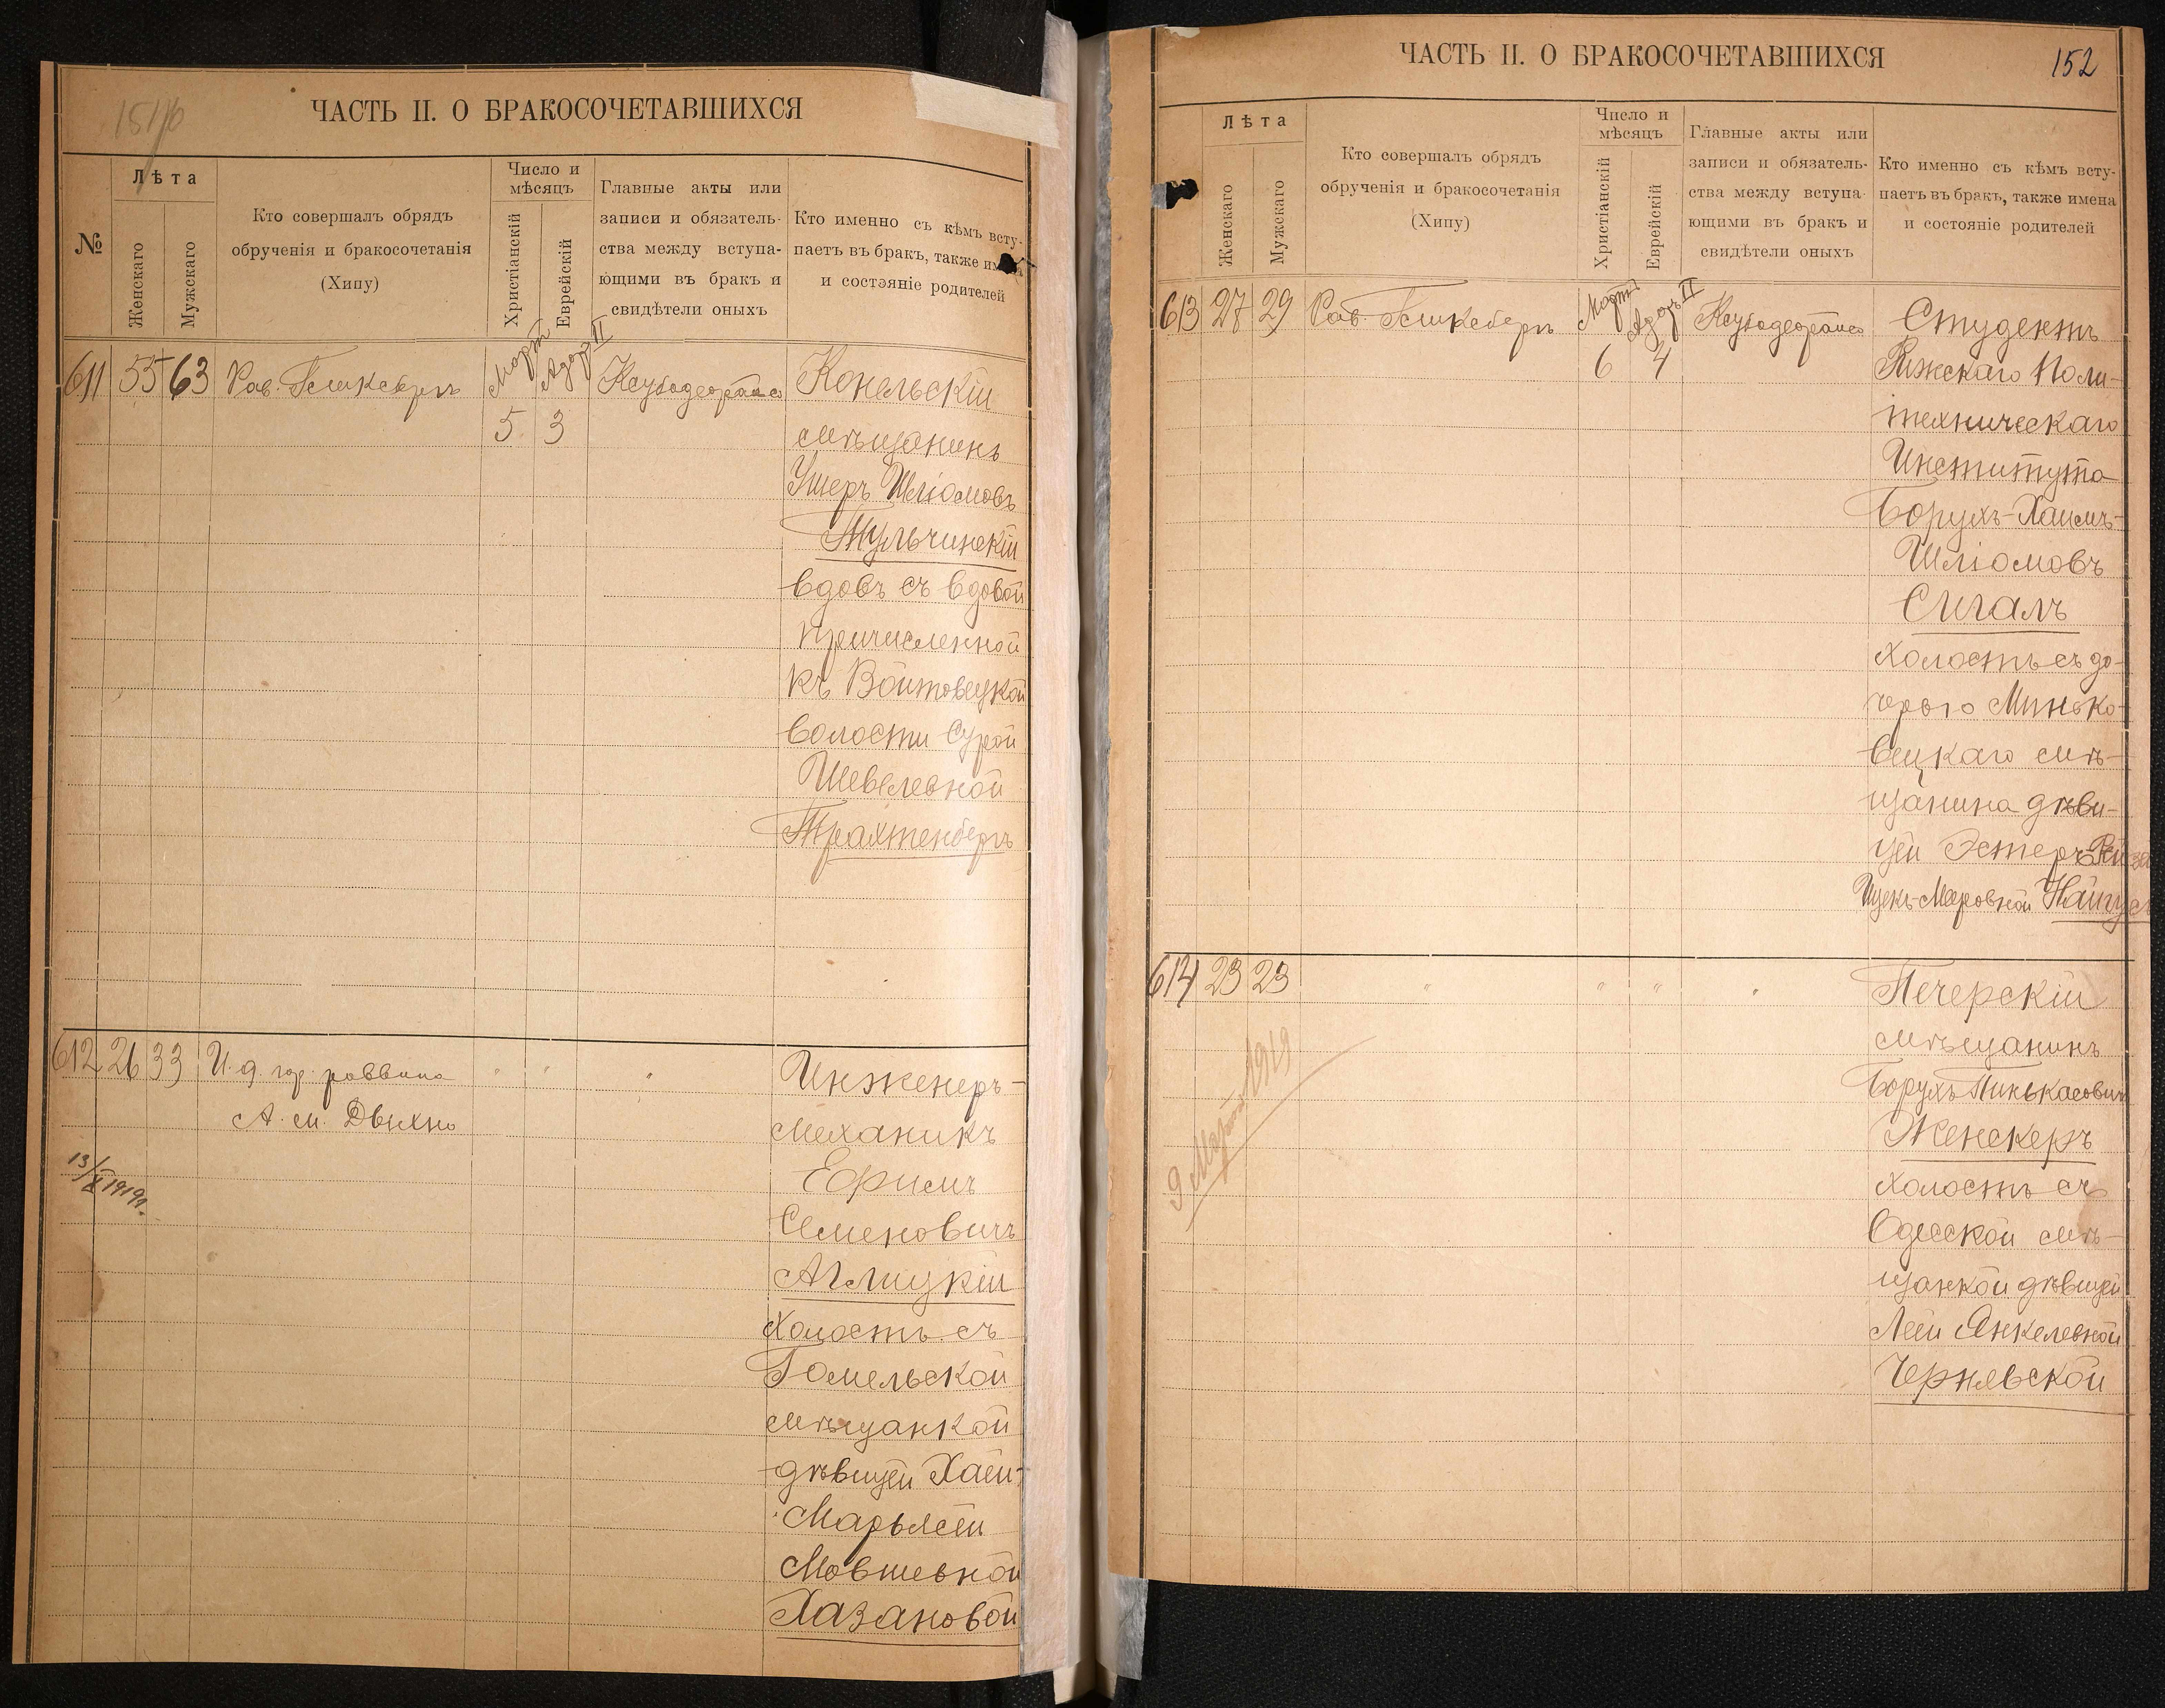 151 об
ЧАСТЬ II. О БРАКОСОЧЕТАВШИХСЯ
№
Лѣта
Женскаго
Мужскаго
Кто совершалъ обрядъ
обрученія и бракосочетанія
(Хипу)
Число и
мѣсяцъ
Христіанскій
Еврейскій
Главные акты или
записи и обязатель-
ства между вступа-
ющими въ бракъ и
свидѣтели оныхъ
Кто именно съ кѣмъ всту-
паетъ въ бракъ, также имена
и состояніе родителей
611 55 63 Рав. Март Адоръ II Конельскій
5 3 мѣщанинъ
Ушеръ Шліомовъ
Тульчинскій
вдовъ съ вдовой
причисленной
къ Войтовецкой
волости Сурой
Шевелевной
Трахтенбергъ
612 26 33 И. д. гор. раввина " " " Инженеръ-
А. м. Двихно механикъ
13/X 1919г. Ефримъ
Семеновичъ
Аглицкій
холостъ съ
Гомельской
мѣщанкой
дѣвицей Хаей-
Марьясей
Мовшевной
Хазановой
152
ЧАСТЬ II. О БРАКОСОЧЕТАВШИХСЯ
Лѣта
Женскаго
Мужскаго
Кто совершалъ обрядъ
обрученія и бракосочетанія
(Хипу)
Число и
мѣсяцъ
Христіанскій
Еврейскій
Главные акты или
записи и обязатель-
ства между вступа-
ющими въ бракъ и
свидѣтели оныхъ
Кто именно съ кѣмъ всту-
паетъ въ бракъ, также имена
и состояніе родителей
613 27 29 Рав. Март Адоръ II Студентъ
6 4 Рижскаго Поли-
техническаго
Института
Борухъ-Хаимъ-
Шліомовъ
Сигалъ
холостъ съ до-
черью Минько-
вецкаго мѣ-
щанина дѣви-
цей Эстеръ-Рейзей
Ицекъ-Меровной
614 23 23 " " " " Печерскій
мѣщанинъ
Борухъ Пинькасовичъ
Женскеръ
холостъ съ
Одесской мѣ-
щанкой дѣвицей
Леей Янкелевной
Чернявской
9 Марта 1919